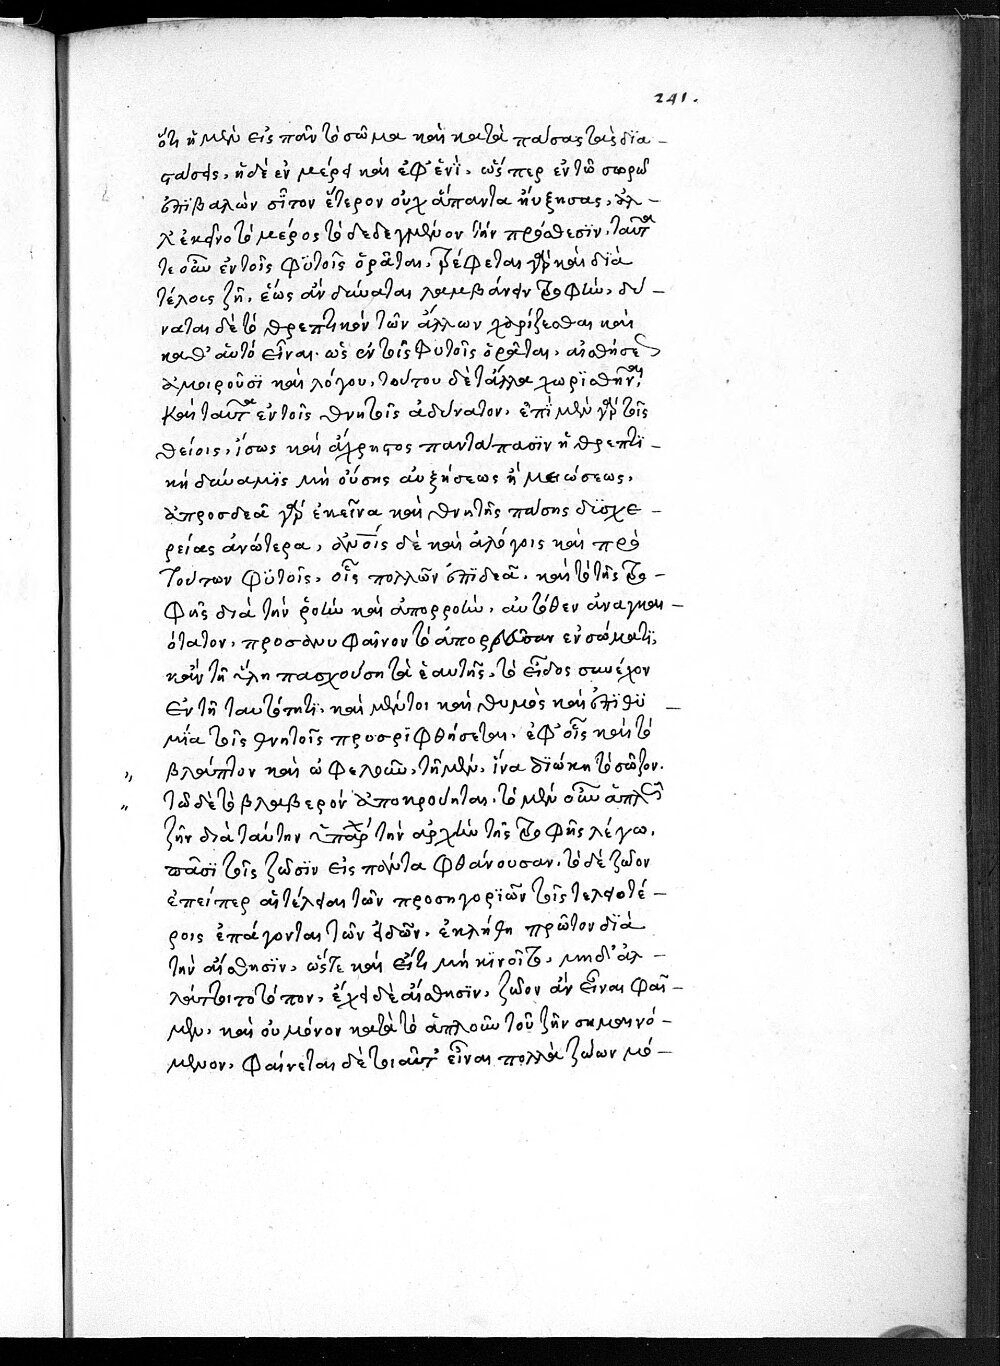 241.
ὅτι ἡ μὲν εἰς πᾶν τὸ σῶμα καὶ κατὰ πάσας τὰς δια-
στάσεις, ἡ δὲ ἐν μέρει καὶ ἐφ' ἑνὶ, ὥσπερ ἐν τῷ σωρῷ
ἐπιβαλὼν σῖτον ἕτερον οὐχ ἅπαντα ηὔξησας, ἀλ-
λ' ἐκεῖνο τὸ μέρος τὸ δεδεγμένον τὴν πρόσθεσιν, ταῦτά
τε οὖν ἐν τοῖς φυτοῖς ὁρᾶται, τρέφεται γὰρ καὶ διὰ
τέλους ζῇ, ἕως ἂν δύναται λαμβάνειν τροφήν, δύ-
ναται δὲ τὸ θρεπτικὸν τῶν ἄλλων χωρίζεσθαι καὶ
καθ' αὑτὸ εἶναι. ὡς ἐν τοῖς φυτοῖς ὁρᾶται, αἰσθήσεως
ἀμοιροῦσι καὶ λόγου, τούτου δὲ τἄλλα χωρισθῆναι,
καὶ ταῦτα ἐν τοῖς θνητοῖς ἀδύνατον, ἐπὶ μὲν γὰρ τοῖς
θείοις, ἴσως καὶ ἄχρηστος παντάπασιν ἡ θρεπτι-
κὴ δύναμις μὴ οὔσης αὐξήσεως ἢ μειώσεως,
ἀπροσδεᾶ γὰρ ἐκεῖνα καὶ θνητῆς πάσης δυσχε-
ρείας ἀνώτερα, δὲ καὶ ἀλόγοις καὶ πρὸ
τούτων φυτοῖς, οἷς πολλῶν ἐπιδεᾶ, καὶ τὸ τῆς τρο-
φῆς διὰ τὴν ῥοὴν καὶ ἀπορροὴν, αὐτόθεν ἀναγκαι-
ότατον, προσανυφαῖνον τὸ ἀπορρεῦσαν ἐν σώματι,
κἀν τῇ ὕλῃ πασχούσῃ τὰ ἑαυτῆς, τὸ εἶδος συνέχον
ἐν τῇ ταυτότητι, καὶ μέντοι καὶ θυμὸς καὶ ἐπιθυ-
μία τοῖς θνητοῖς προσριφθήσεται, ἐφ' οἷς καὶ τὸ
βλάπτον καὶ ὠφελοῦν, τῇ μὲν, ἵνα διώκῃ τὸ σῶζον.
τῷ δὲ τὸ βλαβερὸν ἀποκρούηται, τὸ μὲν οὖν ἁπλῶς
ζῆν διὰ ταύτην ὑπάρχει τὴν ἀρχὴν τῆς τροφῆς λέγω,
πᾶσι τοῖς ζῶσιν εἰς πάντα φθάνουσαν. τὸ δὲ ζῶον
ἐπείπερ αἱ τέλειαι τῶν προσηγοριῶν τοῖς τελειοτέ-
ροις ἐπάγονται τῶν εἰδῶν, ἐκλήθη πρῶτον διὰ
τὴν αἴσθησιν, ὥστε καὶ εἴ τι μὴ κινοῖτο, μηδ' ἀλ-
λάττοι τὸ τόπον, ἔχει δὲ αἴσθησιν, ζῶον ἂν εἶναι φαῖ-
μεν, καὶ οὐ μόνον κατὰ τὸ ἁπλοῦν τοῦ ζῆν σημαινό-
μενον, φαίνεται δὲ τοιαῦτ' εἶναι πολλὰ ζώων μό-